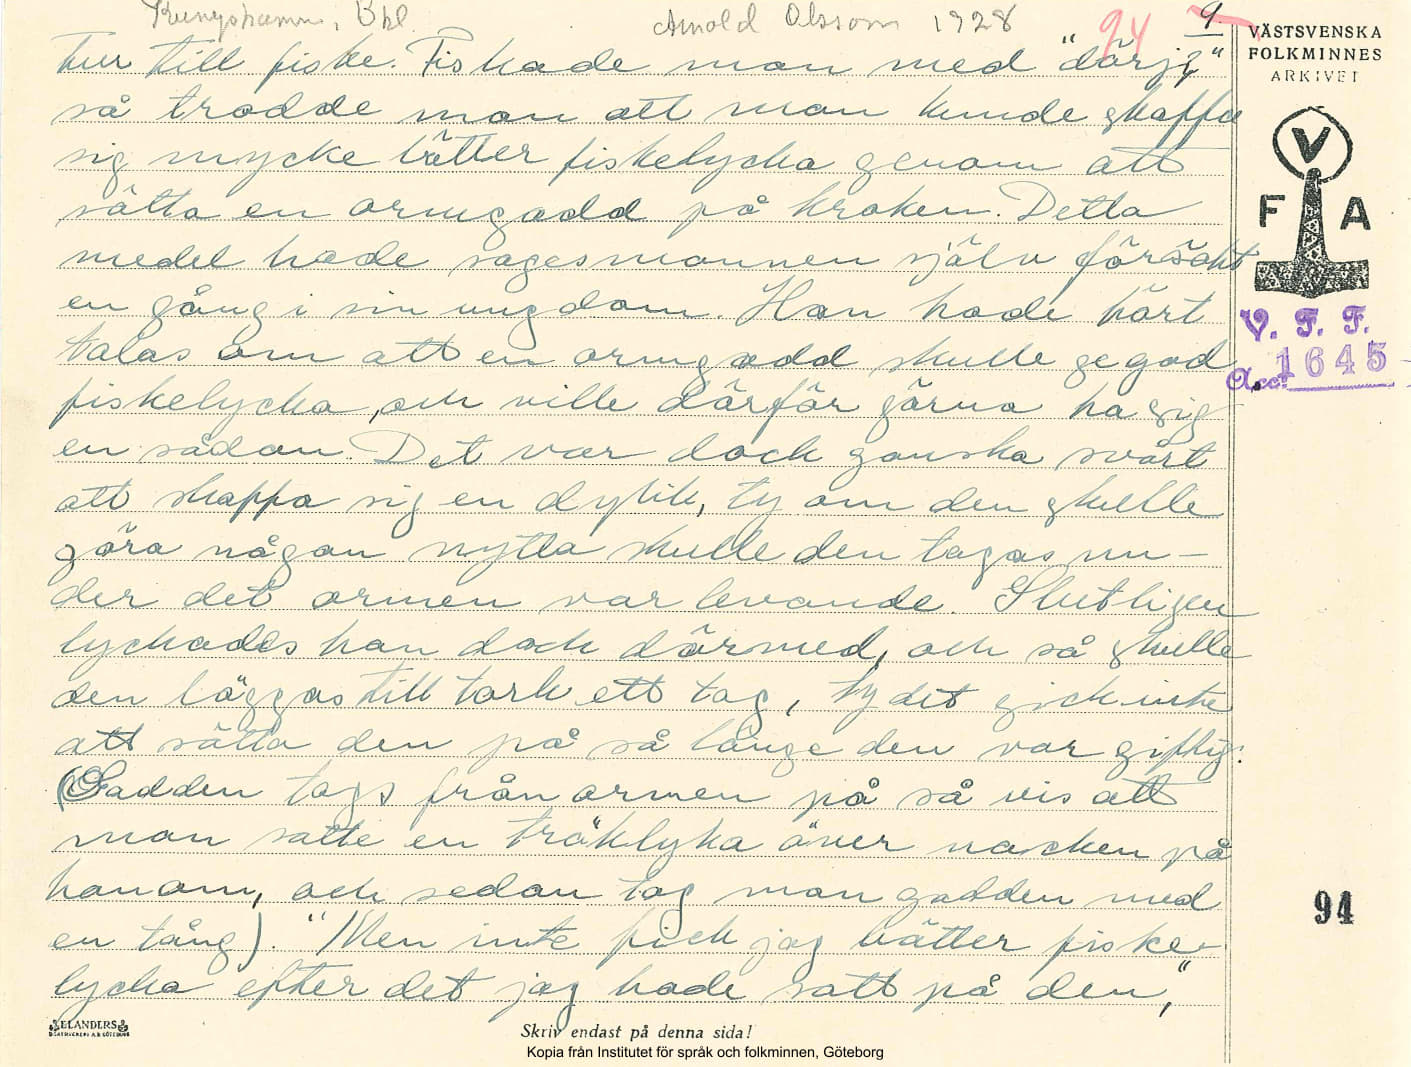 Kungshamn, Bhl. Arnold Olsson 1928 94 9.
VÄSTSVENSKA
FOLKMINNES
ARKIVET
tur till fiske. Fiskade man med "därj"
så trodde man att man kunde skaffa
sig mycke bätter fiskelycka genom att
sätta en ormgadd på kroken. Detta
medel hade sagesmannen själv försökt
en gång i sin ungdom. Han hade hört
talas om att en ormgadd skulle ge god
fiskelycka, och ville därför gärna ha sig
en sådan. Det var dock ganska svårt
att skaffa sig en dylik, ty om den skulle
göra någon nytta skulle den tagas un-
der det ormen var levande. Slutligen
lyckades han dock därmed, och så skulle
den läggas till tork ett tag, ty det gick inte
att sätta den på så länge den var giftig.
(Gadden togs från ormen på så vis att
man satte en träklyka över nacken på
honom, och sedan tog man gadden med
en tång). "Men inte fick jag bätter fiske-
lycka efter det jag hade satt på den,"
V
F A
V. F. F.
Acc. 1645
94
ELANDERS
Skriv endast på denna sida!
Kopia från Institutet för språk och folkminnen, Göteborg